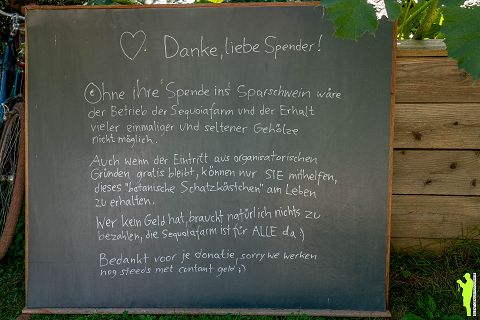 ♡. Danke, liebe Spender!
Ohne ihre Spende ins Sparschwein wäre
der Betrieb der Sequoiafarm und der Erhalt
vieler einmaliger und seltener Gehölze
nicht möglich.
Auch wenn der Eintritt aus organisatorischen
Gründen gratis bleibt, können nur SIE mithelfen,
dieses "botanische Schatzkästchen" am Leben
zu erhalten.
Wer kein Geld hat, braucht natürlich nichts zu
bezahlen, die Sequoiafarm ist für ALLE da :)
Bedankt voor je donatie, sorry we werken
nog steeds met contant geld ;)